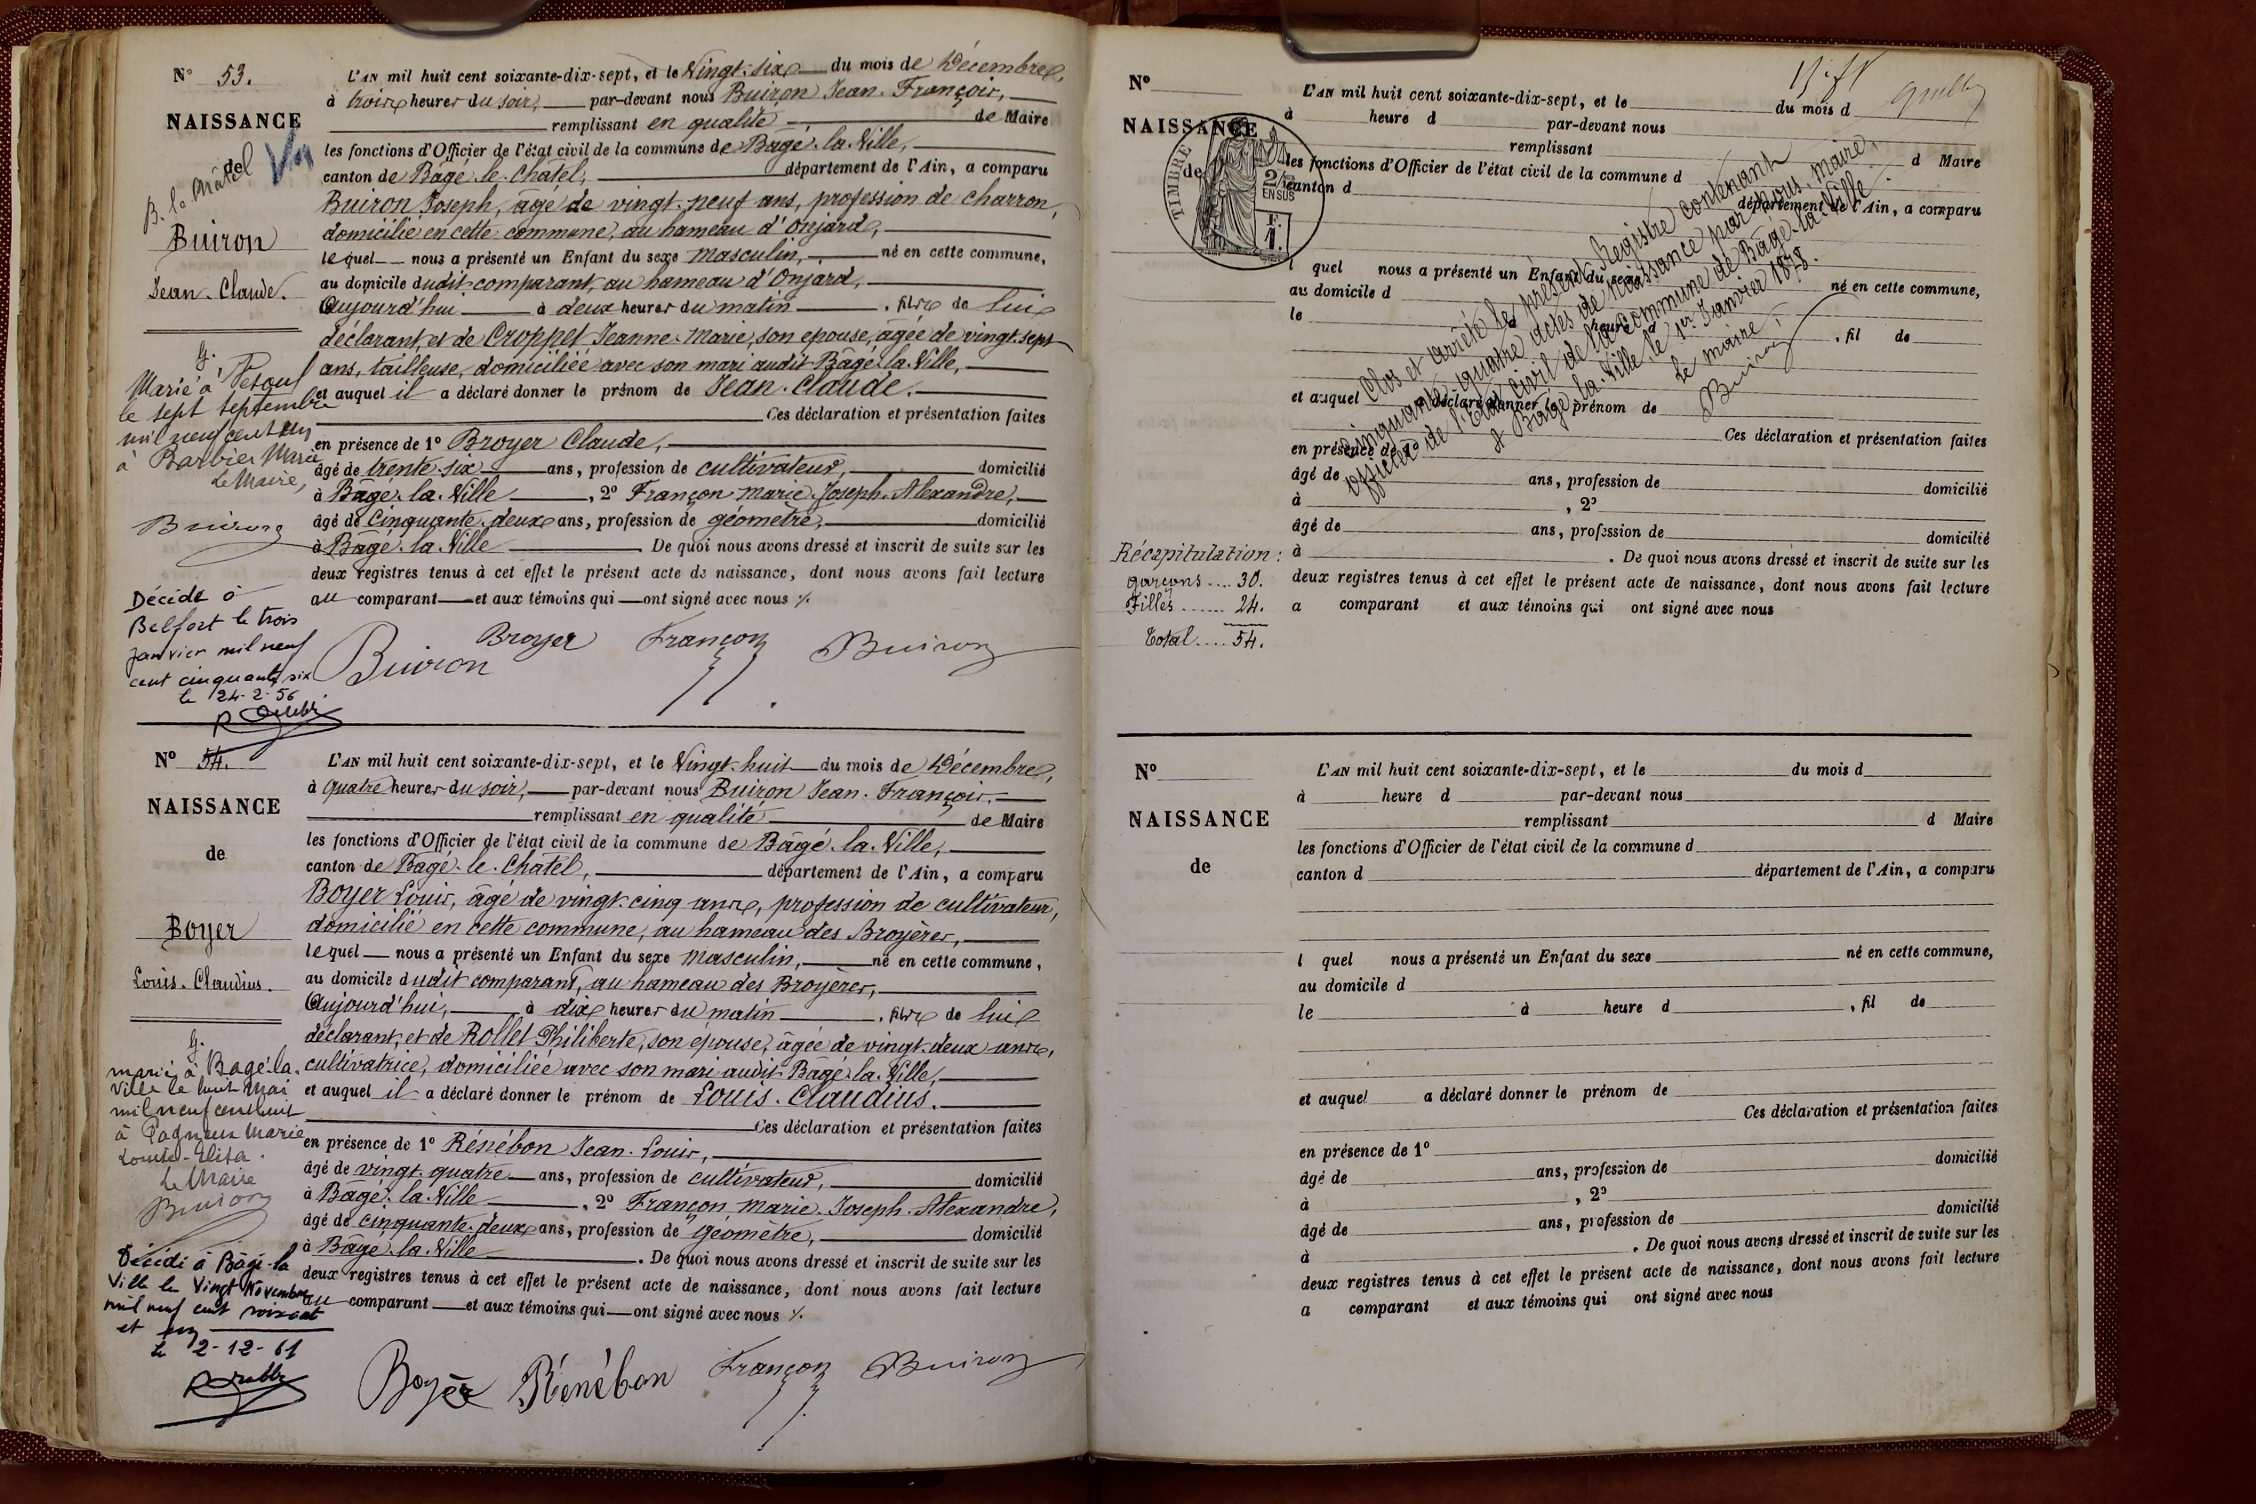 N° 53.
NAISSANCE
de
B. la Châtel
Buiron
Jean-Claude.
L'AN mil huit cent soixante-dix-sept, et le Vingt-six du mois de Décembre,
à trois heures du soir, par-devant nous Buiron Jean-François,
remplissant en qualité de Maire
les fonctions d'Officier de l'état civil de la commune de Bâgé-la-Ville,
canton de Bâgé-le-Châtel, département de l'Ain, a comparu
Buiron Joseph, âgé de vingt-neuf ans, profession de charron,
domicilié en cette commune, au hameau d'Onjard,
lequel nous a présenté un Enfant du sexe masculin, né en cette commune,
au domicile dudit comparant, au hameau d'Onjard,
Aujourd'hui à deux heures du matin, fils de lui
déclarant, et de Croppet Jeanne-Marie, son épouse, âgée de vingt-sept
ans, tailleuse, domiciliée avec son mari audit Bâgé-la-Ville,
et auquel il a déclaré donner le prénom de Jean-Claude.
Ces déclaration et présentation faites
en présence de 1° Broyer Claude,
âgé de trente-six ans, profession de cultivateur, domicilié
à Bâgé-la-Ville, 2° Françon Marie-Joseph-Alexandre,
âgé de cinquante-deux ans, profession de géomètre, domicilié
à Bâgé-la-Ville. De quoi nous avons dressé et inscrit de suite sur les
deux registres tenus à cet effet le présent acte de naissance, dont nous avons fait lecture
au comparant et aux témoins qui ont signé avec nous
Marié à
le sept septembre
mil neuf cent
à Barbier Marie
Le Maire,
Buiron
Décédé à
Belfort le trois
janvier mil neuf
cent cinquante six
le 24-2-56
Broyer Françon Buiron
Buiron
N° 54.
NAISSANCE
de
Boyer
Louis-Claudius.
L'AN mil huit cent soixante-dix-sept, et le Vingt-huit du mois de Décembre,
à quatre heures du soir, par-devant nous Buiron Jean-François,
remplissant en qualité de Maire
les fonctions d'Officier de l'état civil de la commune de Bâgé-la-Ville,
canton de Bâgé-le-Châtel, département de l'Ain, a comparu
Boyer Louis, âgé de vingt-cinq ans, profession de cultivateur,
domicilié en cette commune, au hameau des Broyères,
lequel nous a présenté un Enfant du sexe masculin, né en cette commune,
au domicile dudit comparant, au hameau des Broyères,
Aujourd'hui, à dix heures du matin, fils de lui
déclarant, et de Rollet Philiberte, son épouse, âgée de vingt-deux ans,
cultivatrice, domiciliée avec son mari audit Bâgé-la-Ville,
et auquel il a déclaré donner le prénom de Louis-Claudius.
Ces déclaration et présentation faites
en présence de 1° Rénébon Jean-Louis,
âgé de vingt-quatre ans, profession de cultivateur, domicilié
à Bâgé-la-Ville, 2° Françon Marie-Joseph-Alexandre,
âgé de cinquante-deux ans, profession de géomètre, domicilié
à Bâgé-la-Ville. De quoi nous avons dressé et inscrit de suite sur les
deux registres tenus à cet effet le présent acte de naissance, dont nous avons fait lecture
au comparant et aux témoins qui ont signé avec nous
marié à Bagé-la-
Ville le huit Mai
mil neuf cent huit
à Pagneux Marie
Le Maire
Buiron
Décédé à Bâgé-la
Ville le Vingt Novembre
mil neuf cent soixante
et un
le 2-12-61
Boyer Rénébon Françon Buiron
N°
NAISSANCE
de
TIMBRE
2/10
EN SUS
F.
1.
L'AN mil huit cent soixante-dix-sept, et le du mois d
à heure d par-devant nous
remplissant d Maire
les fonctions d'Officier de l'état civil de la commune d
canton d département de l'Ain, a comparu
l quel nous a présenté un Enfant du sexe né en cette commune,
au domicile d
le à heure d , fil de
et auquel a déclaré donner le prénom de
Ces déclaration et présentation faites
en présence de 1°
âgé de ans, profession de domicilié
à , 2°
âgé de ans, profession de domicilié
à . De quoi nous avons dressé et inscrit de suite sur les
deux registres tenus à cet effet le présent acte de naissance, dont nous avons fait lecture
a comparant et aux témoins qui ont signé avec nous
Clos et arrêté le présent Registre contenant
cinquante-quatre actes de naissance par nous, maire,
officier de l'Etat civil de la commune de Bâgé-la-Ville.
A Bâgé-la-Ville le 1er Janvier 1878.
Le maire,
Buiron
Récapitulation :
garçons .... 30.
Filles ...... 24.
Total .... 54.
N°
NAISSANCE
de
L'AN mil huit cent soixante-dix-sept, et le du mois d
à heure d par-devant nous
remplissant d Maire
les fonctions d'Officier de l'état civil de la commune d
canton d département de l'Ain, a comparu
l quel nous a présenté un Enfant du sexe né en cette commune,
au domicile d
le à heure d , fil de
et auquel a déclaré donner le prénom de
Ces déclaration et présentation faites
en présence de 1°
âgé de ans, profession de domicilié
à , 2°
âgé de ans, profession de domicilié
à . De quoi nous avons dressé et inscrit de suite sur les
deux registres tenus à cet effet le présent acte de naissance, dont nous avons fait lecture
a comparant et aux témoins qui ont signé avec nous